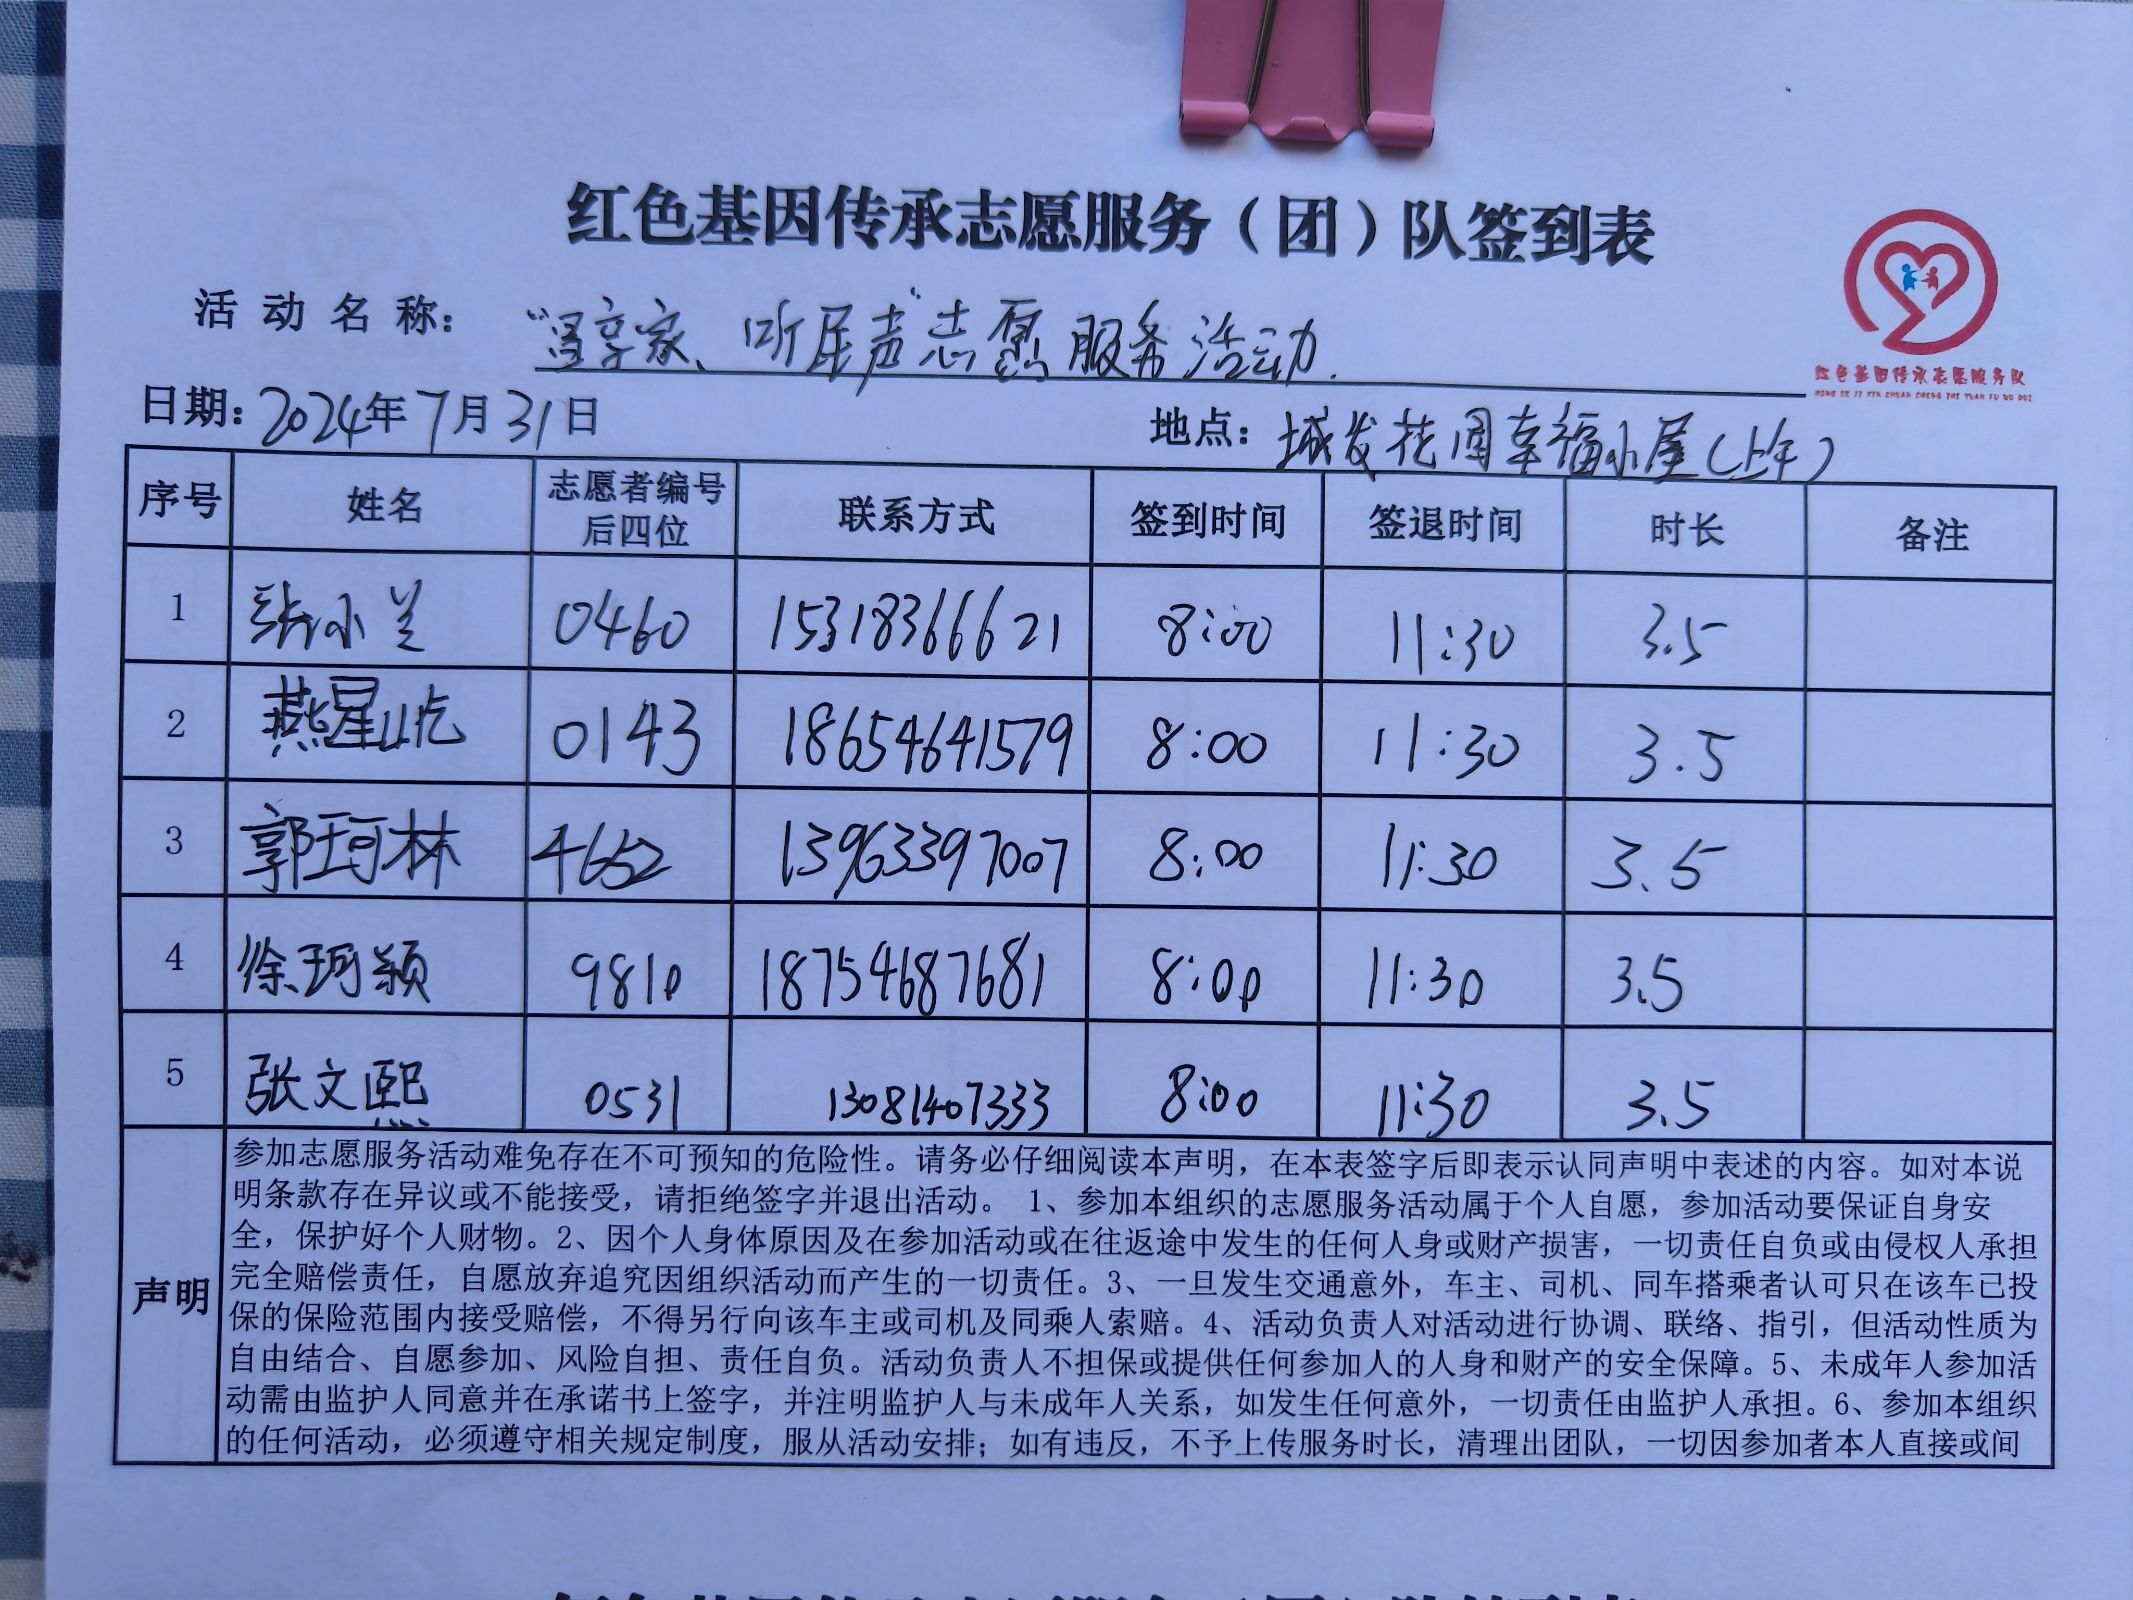 红色基因传承志愿服务（团）队签到表
活动名称：“遥享家、听民声”志愿服务活动.
红色基因传承志愿服务队
HONG SE JI YIN CHUAN CHENG ZHI YUAN FU WU DUI
日期：2024年7月31日 地点：城发花园幸福小屋（上午）
序号 姓名 志愿者编号后四位 联系方式 签到时间 签退时间 时长 备注
1 张小兰 0460 15318366621 8:00 11:30 3.5
2 燕星屹 0143 18654641579 8:00 11:30 3.5
3 郭珂林 4652 13963397007 8:00 11:30 3.5
4 徐珂颖 9810 18754687681 8:00 11:30 3.5
5 张文熙 0531 13081407333 8:00 11:30 3.5
声明
参加志愿服务活动难免存在不可预知的危险性。请务必仔细阅读本声明，在本表签字后即表示认同声明中表述的内容。如对本说
明条款存在异议或不能接受，请拒绝签字并退出活动。 1、参加本组织的志愿服务活动属于个人自愿，参加活动要保证自身安
全，保护好个人财物。2、因个人身体原因及在参加活动或在往返途中发生的任何人身或财产损害，一切责任自负或由侵权人承担
完全赔偿责任，自愿放弃追究因组织活动而产生的一切责任。3、一旦发生交通意外，车主、司机、同车搭乘者认可只在该车已投
保的保险范围内接受赔偿，不得另行向该车主或司机及同乘人索赔。4、活动负责人对活动进行协调、联络、指引，但活动性质为
自由结合、自愿参加、风险自担、责任自负。活动负责人不担保或提供任何参加人的人身和财产的安全保障。5、未成年人参加活
动需由监护人同意并在承诺书上签字，并注明监护人与未成年人关系，如发生任何意外，一切责任由监护人承担。6、参加本组织
的任何活动，必须遵守相关规定制度，服从活动安排；如有违反，不予上传服务时长，清理出团队，一切因参加者本人直接或间